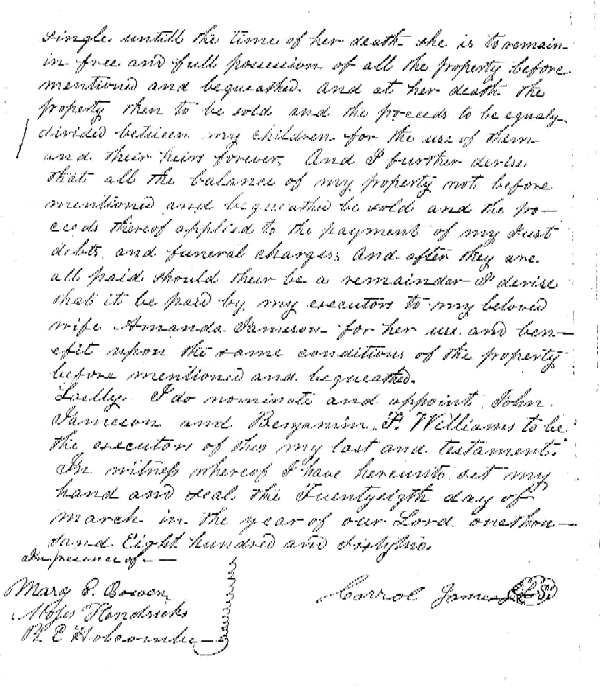 single untill the time of her death she is to remain
in free and full possession of all the property before
mentioned and bequeathed. And at her death the
property then to be sold and the proceeds to be equaly
divided between my children for the use of them
and their heirs forever. And I further devise
that all the balance of my property not before
mentioned and bequeathed be sold and the pro-
ceeds thereof applied to the payment of my Just
debts and funeral charges; And after they are
all paid should their be a remainder I devise
that it be paid by my executors to my beloved
wife Amanda Jameson for her use and ben-
efit upon the same conditions of the property
before mentioned and bequeathed.
Lastly I do nominate and appoint John
Jameson and Benjamin P. Williams to be
the executors of this my last and testament.
In witness whereof I have hereunto set my
hand and seal the Twentyeigth day of
March in the year of our Lord onethou-
sand Eight hundred and
In presence of
Mary E. Bowen
Moses Hendricks
Holcombe
Carrol Jameson